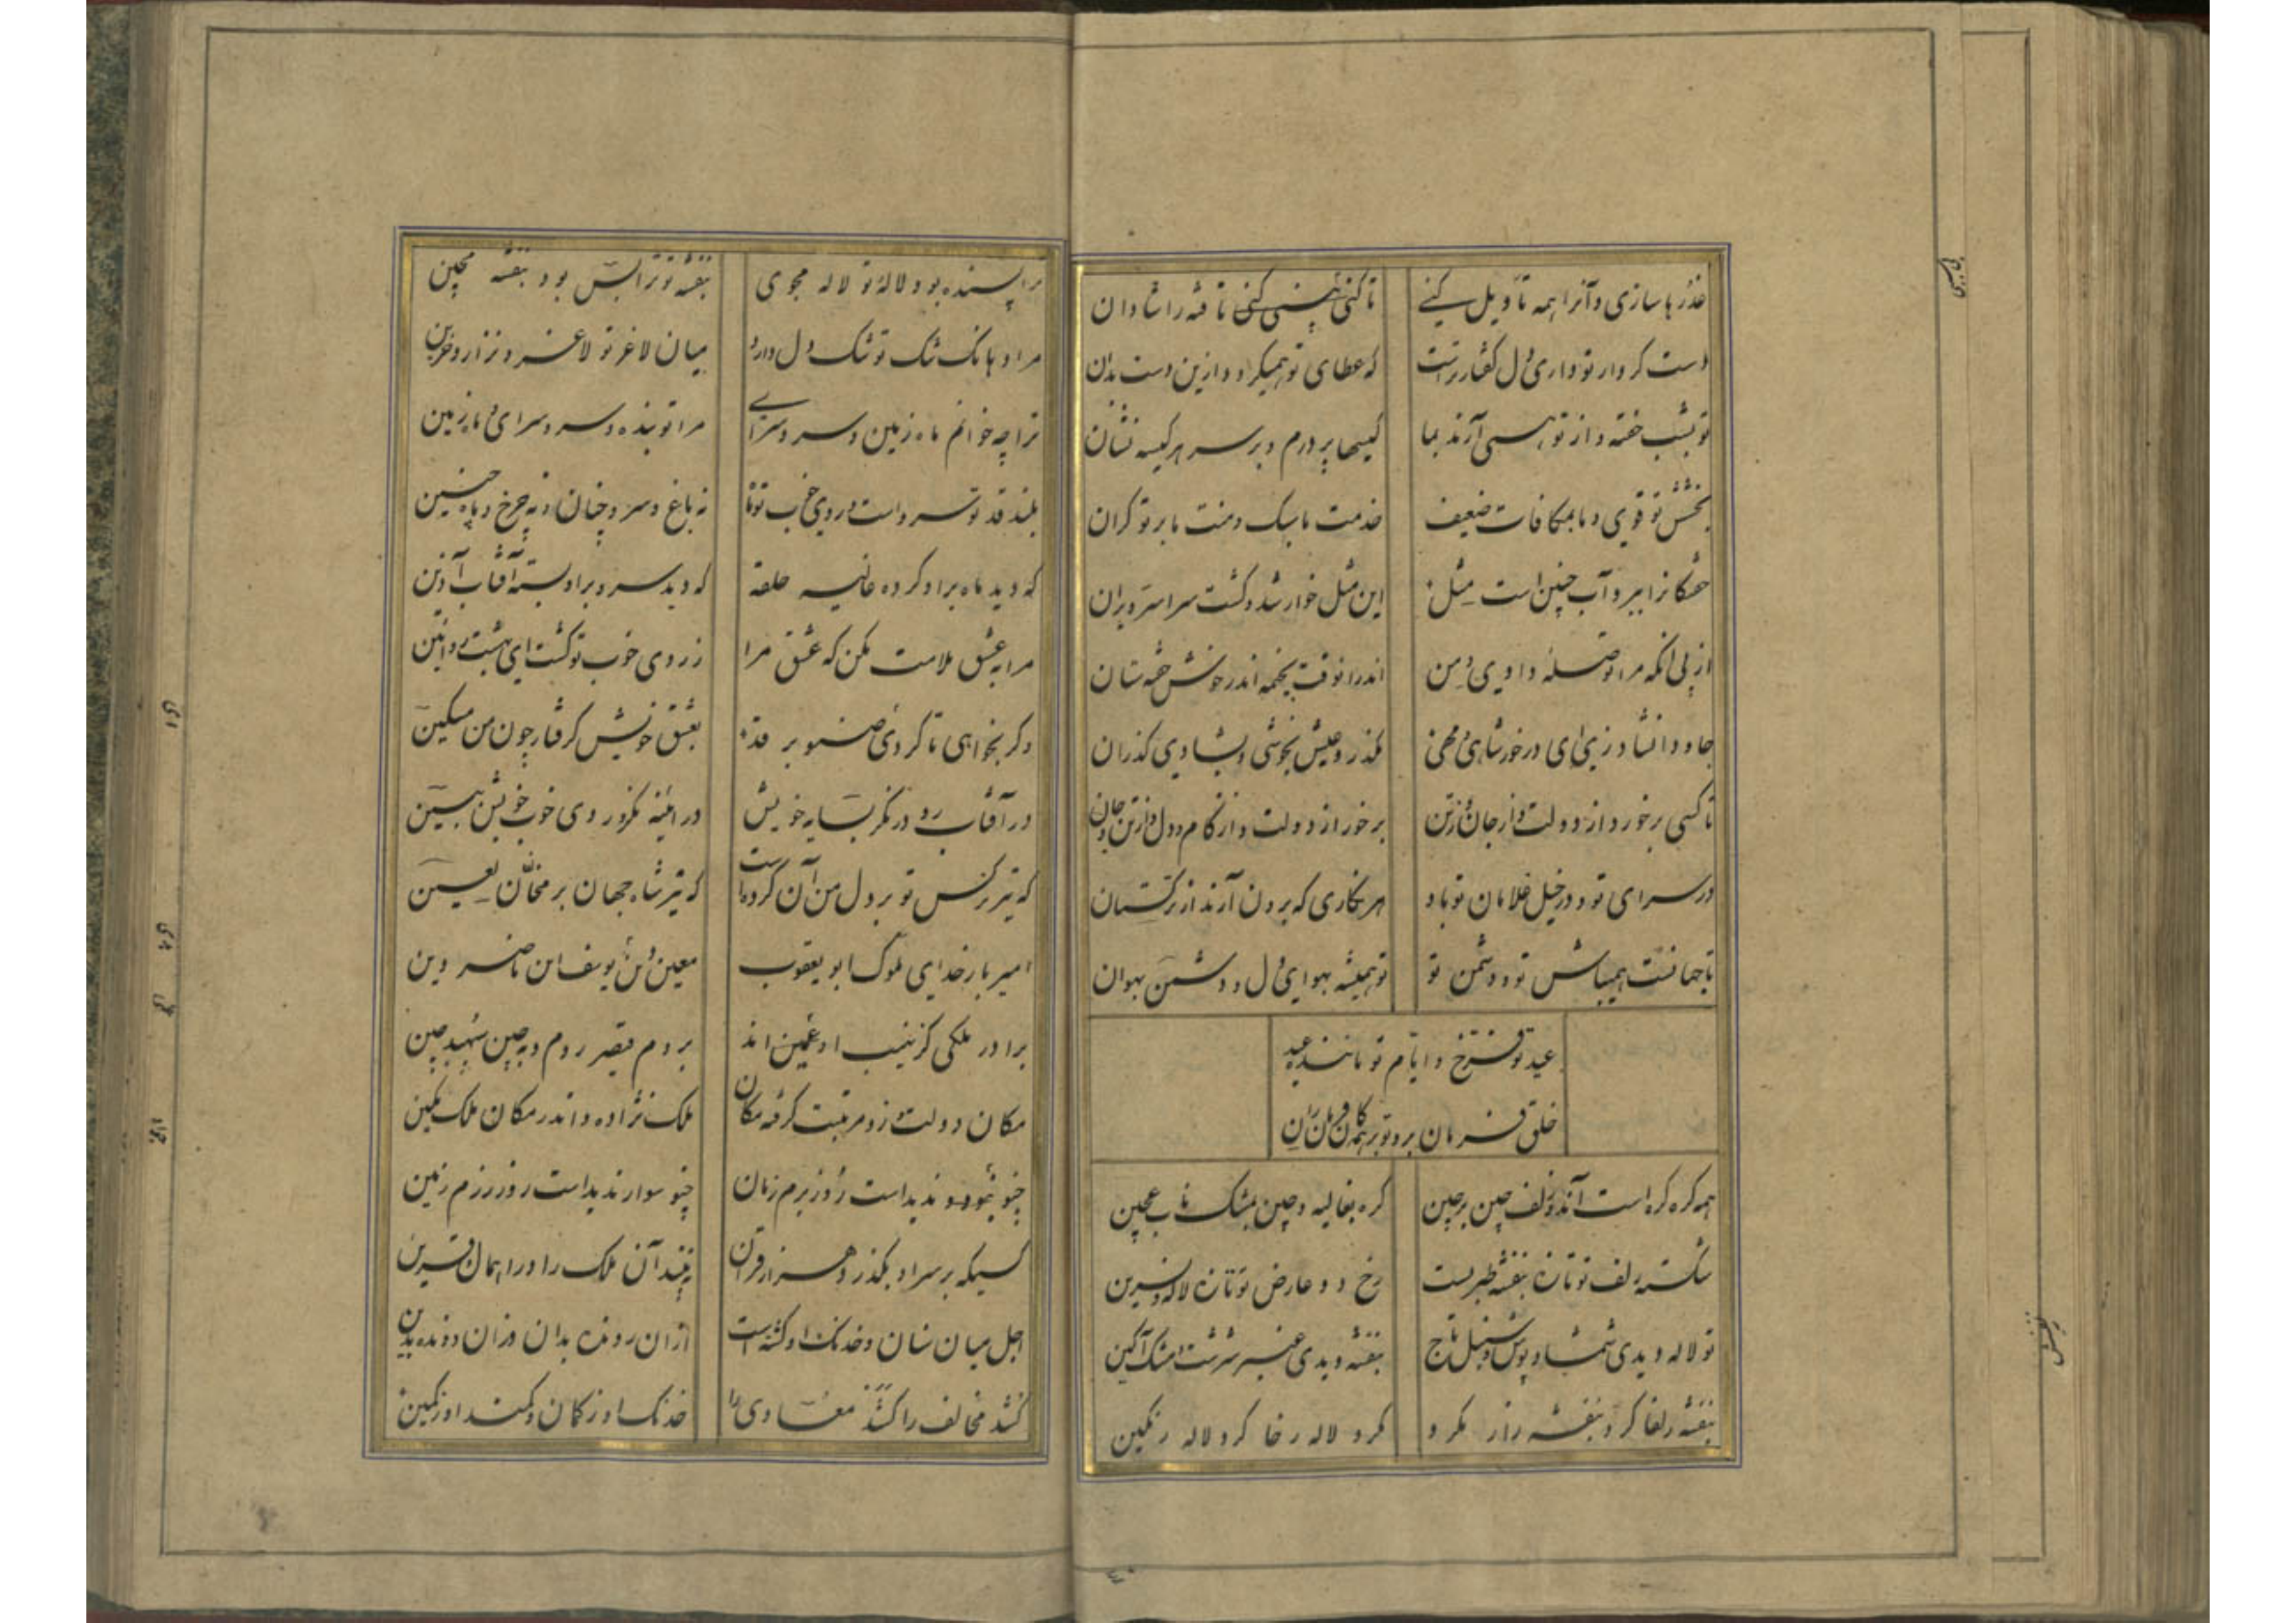 عذرها سازی و آنرا همه تأویل کنی
تا کنی نیستی کنی تافته را شادان
دست کردار تو داری دل گفتار تراست
که عطای تو همیگردد ازین دست بدان
تو بشب خفته و از تو همی آرند بما
کیسها پر درم و بر سر هر کیسه نشان
بخشش تو قوی و ما بمکافات ضعیف
خدمت ما سبک و منت ما بر تو گران
خشکانرا ببر و آب چنین است مثل
این مثل خوار شد و گشت سراسر ویران
از پی آنکه مرا تو صله دادی و من
اندر آنوقت بخیمه اندر خوش خفته ستان
جاودان شاد زی ای درخور شاهی و مهی
بگذر و عیش بخوشی و بشادی گذران
تا کسی برخورد از دولت و از جان و ز تن
برخور از دولت و از کام دل و از تن و جان
در سرای تو و در خیل غلامان تو باد
هر نگاری که برون آرند از ترکستان
تا جهانست همیباش تو و دشمن تو
تو همیشه بهوای دل و دشمن بهوان
عید تو فرخ و ایام تو ماننده عید
خلق فرمان بر و تو بر همگان فرمان ران
همه گره گره است آن دو زلف چین بر چین
گره بغالیه و چین بمشک ناب عجین
شکسته زلف تو تازه بنفشه طبریست
رخ و دو عارض تو تازه لاله و نسرین
تو لاله دیدی شمشاد پوش و سنبل تاج
بنفشه دیدی عنبر سرشت و مشک آگین
بنفشه زلفا گرد بنفشه زار مگرد
گرد لاله رخا گرد لاله رنگین
ترا پسنده بود لاله تو لاله مجوی
بنفشه تو ترا بس بود بنفشه مچین
مرا دهانک تنگ تو تنگ دل دارد
میان لاغر تو لاغر و نزار و حزین
ترا چه خوانم ماه زمین و سرو سرای
مرا تو بنده و سرو سرای و ماه زمین
بلند قد تو سرو است و روی خوب تو ماه
نه باغ و سرو چنان و نه چرخ و ماه چنین
که دید ماه برو کرده غالیه حلقه
که دید سرو برو بسته آفتاب آذین
مرا به عشق ملامت مکن که عشق مرا
ز روی خوب تو گشت ای بهشت رو آیین
وگر بخواهی تا گردی صنوبر قد
بعشق خویش گرفتار چون من مسکین
در آفتاب رو و در نگر بسایه خویش
در آینه نگر و روی خوب خویش ببین
که تیر نرگس تو بر دل من آن کرده است
که تیر شاه جهان بر مخالفان لعین
امیر بار خدای ملوک ابو یعقوب
معین دین یوسف ابن ناصر دین
برادر ملکی کز نهیب او غمین اند
بروم قیصر روم و به چین سپهبد چین
مکان دولت و زو مرتبت گرفته مکان
ملک نژاده و اندر مکان ملک مکین
چنو نبود و ندیداست روز بزم زمان
چنو سوار ندیداست روز رزم زمین
کسیکه بر سر او بگذرد هزار قران
نبیند آن ملک را در آسمان قرین
اجل میان سنان و خدنگ او گشته است
از آن رونده بدان و از آن دونده بدین
کشد مخالف را کشد معادی را
خدنگ او ز کمان و کمند او ز کمین